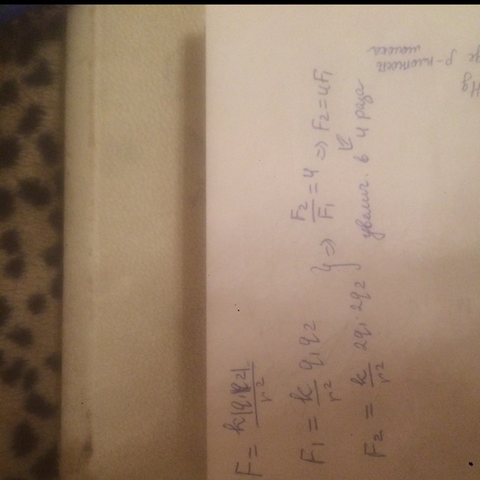 F = k|q1||q2| / r²
F1 = k/r² q1q2
F2 = k/r² 2q1·2q2 } => F2/F1 = 4 => F2 = 4F1
увелич. в 4 раза
ρ-плотность